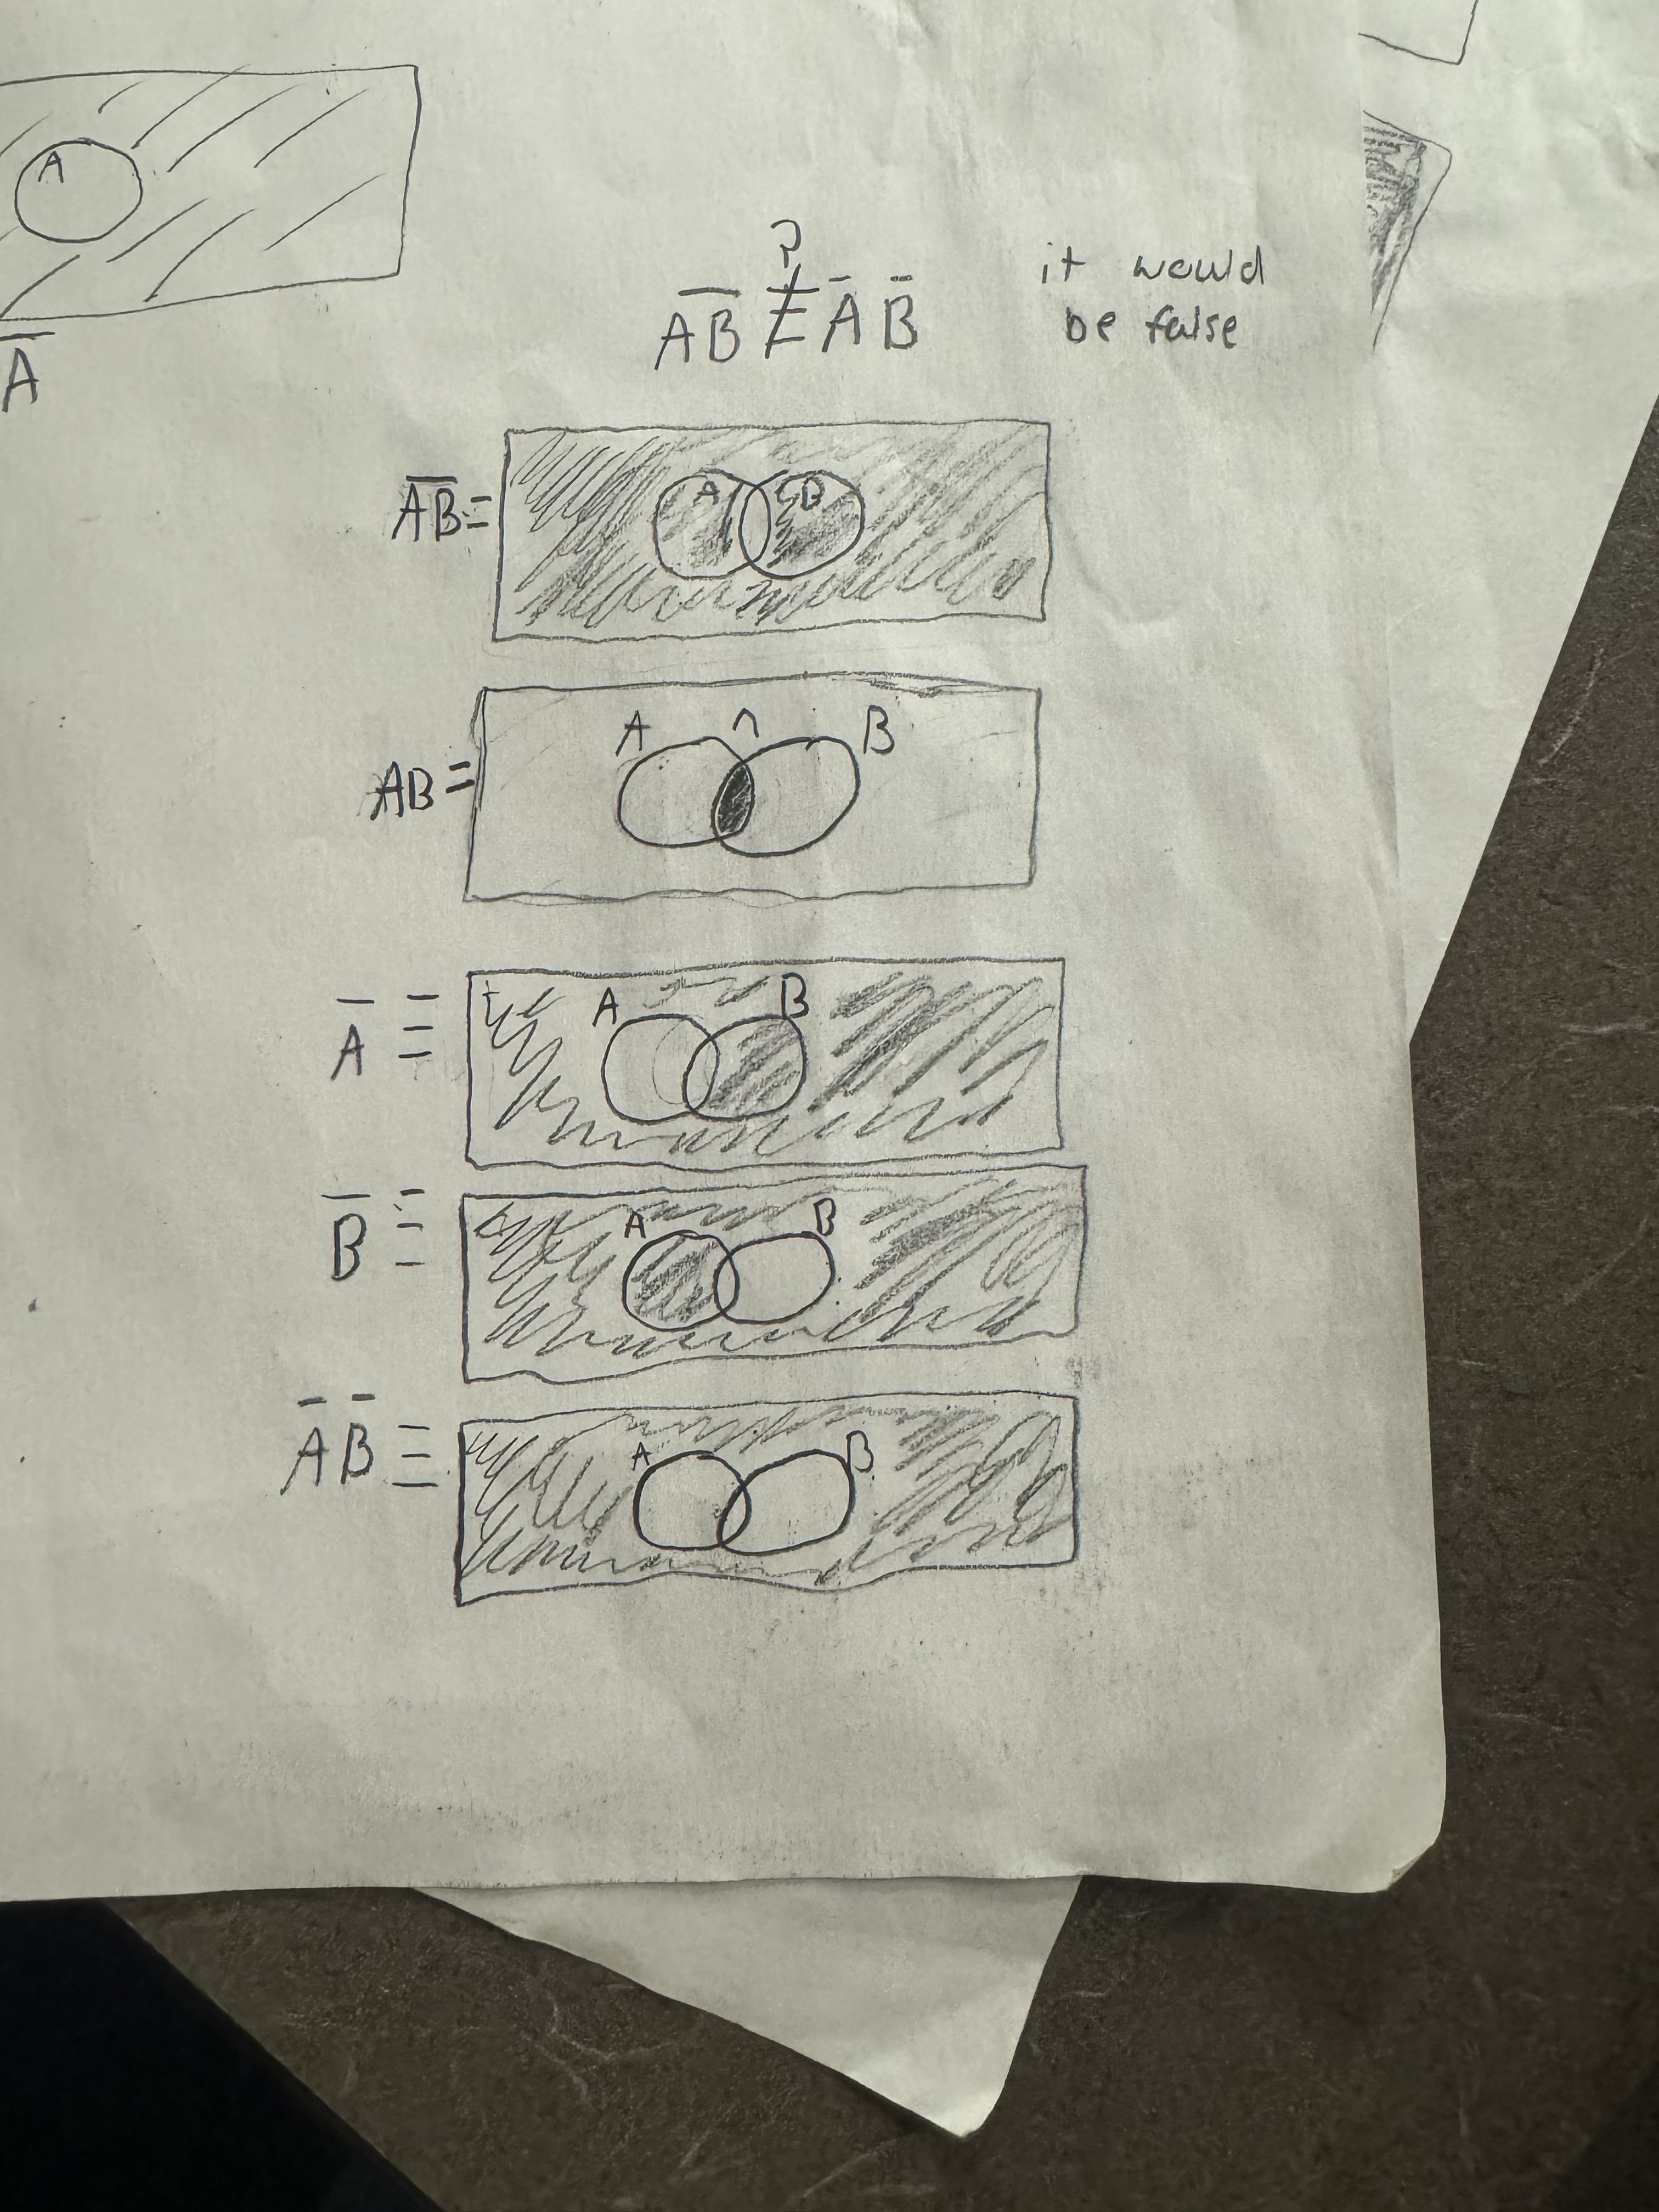 A
A̅
?
A̅B̅ ≢ A̅ B̅
it would
be false
A̅B̅ =
A B
AB =
A ∩ B
A̅ ≡
A B
B̅ ≡
A B
A̅ B̅ ≡
A B